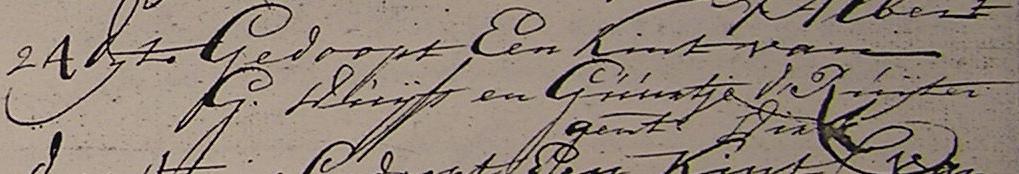 Albert
24 dyto Gedoopt Een kint van
G. Duijff en Guurtje d' Ruijter
gent. Dirk
Gedoopt Een Kint van